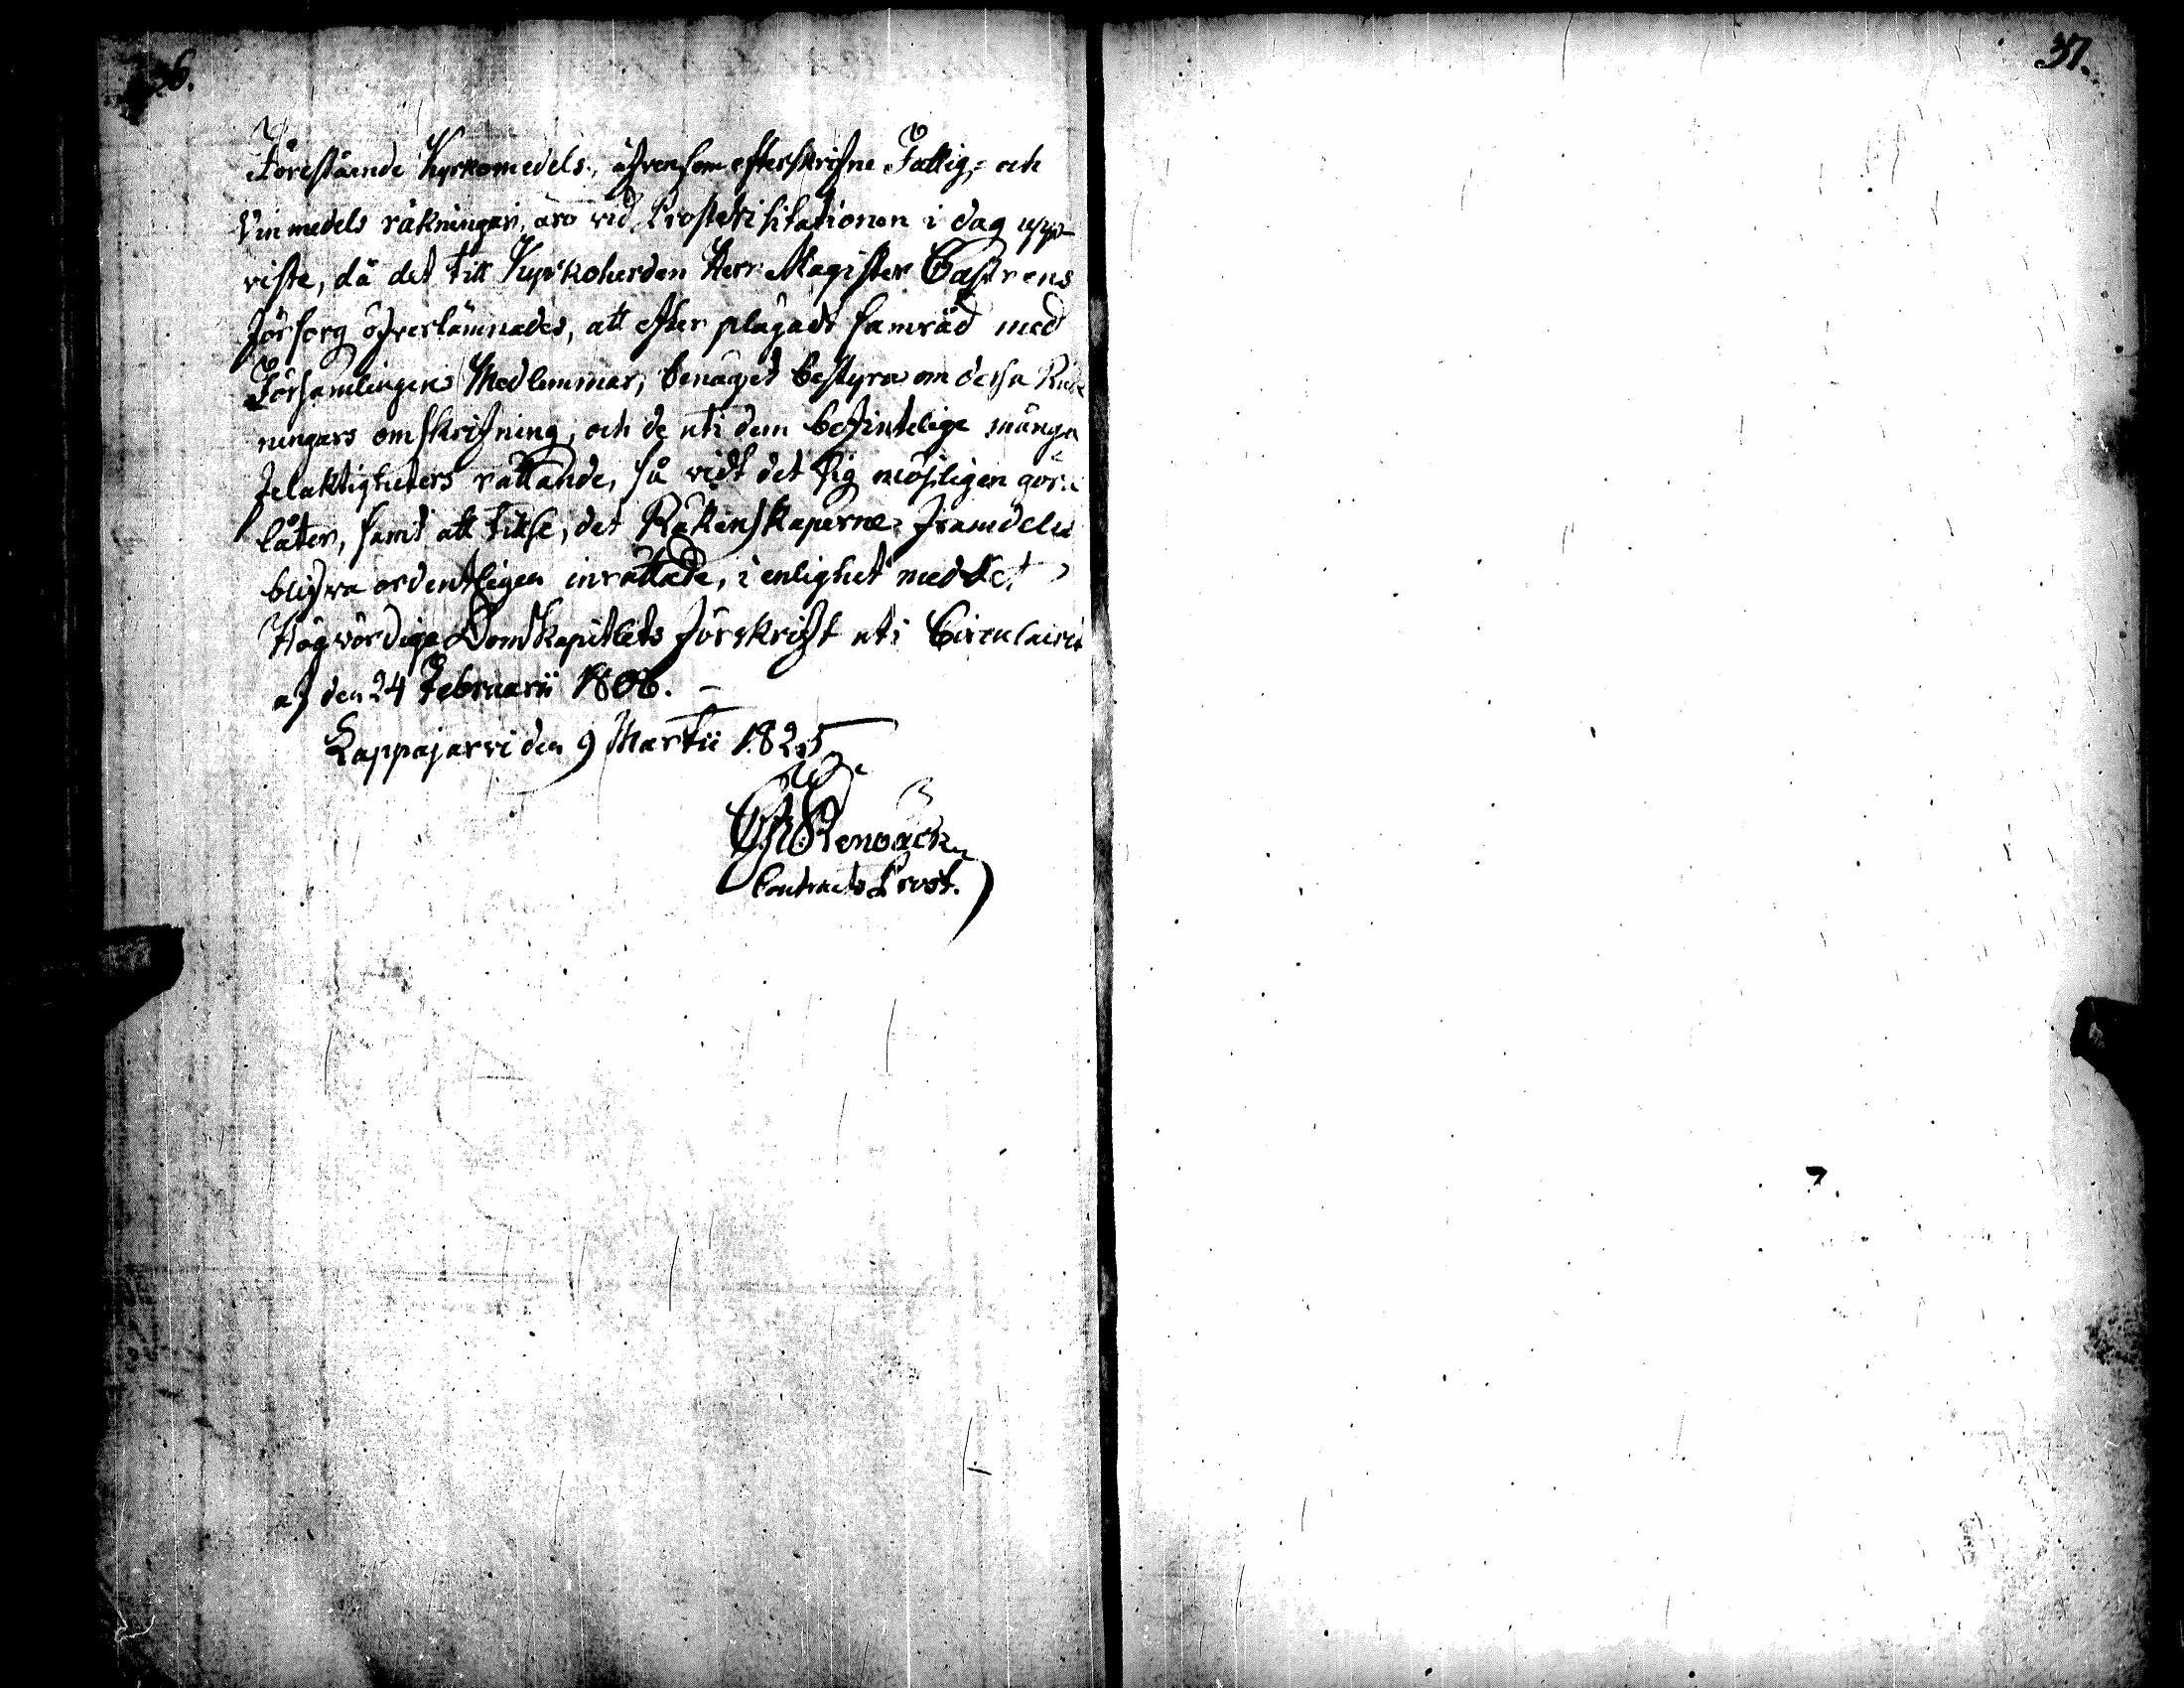 36.
37.
Förestående Kyrkomedels, äfvensom efterskrifne Fattig- och
Vinmedels räkningar, äro vid Prostevisitationen i dag upp-
viste, då det till Kyrkoherden Herr Magister Castrens
försorg öfverlämnades, att efter plägadt samråd med
Församlingens Medlemmar, benäget bestyra om dessa Räk
ningars omskrifning, och de uti dem befintelige många
felaktigheters rättande, så vidt det sig möjligen göra
låter, samt att tillse, det Räkenskaperne framdeles
blifva ordentligen inrättade, i enlighet med Det
Högvördige Domkapitlets förskrift uti Circulairet
af den 24 Februarii 1806.
Lappajärvi den 9 Martii 1825
Renbäck
Contracts Prost.